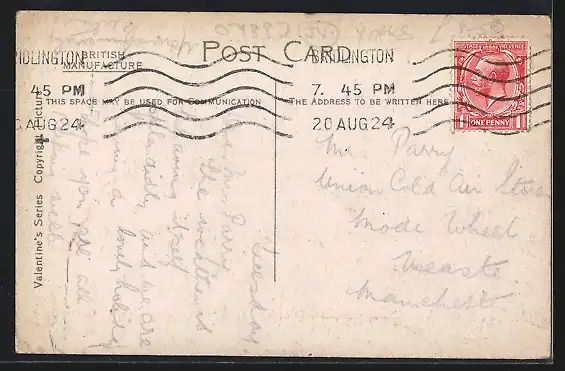 BRITISH
MANUFACTURE
POST CARD
THIS SPACE MAY BE USED FOR COMMUNICATION
THE ADDRESS TO BE WRITTEN HERE
BRIDLINGTON
45 PM
AUG 24
BRIDLINGTON
7. 45 PM
20 AUG 24
POSTAGE REVENUE
1 1
ONE PENNY
Valentine's Series Copyright Picture
Mr Parry
Union Cold Air Store
Mode Wheel
Weaste
Manchester
Tuesday
Mr Parry
The weather is
itself
splendidly and we are
having a lovely holiday
hope you are all
well